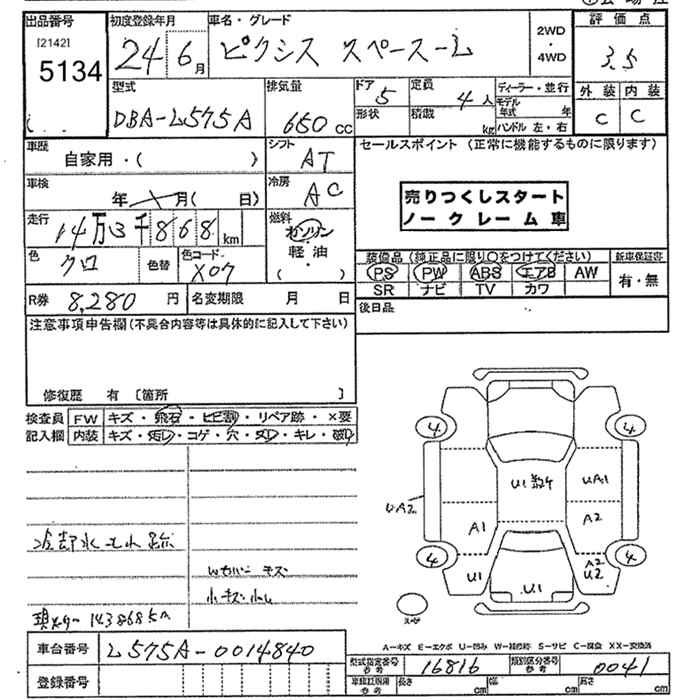 出品番号
[2142]
5134
初度登録年月
24 6月
車名・グレード
ピクシス スペースーL
2WD
・
4WD
評価点
3.5
外装 内装
C C
型式
DBA-L575A
排気量
660 cc
ドア
5
定員
4人
形状
積載
kg
ディーラー・並行
モデル年式 年
ハンドル 左・右
車歴
自家用・( )
シフト
AT
セールスポイント (正常に機能するものに限ります)
車検
年 月( 日)
冷房
AC
売りつくしスタート
ノークレーム車
走行
14万3千868km
燃料
ガソリン
・
軽油
( )
色
クロ
色替
色コード
X07
装備品 (純正品に限り○をつけてください)
PS PW ABS エアB AW
SR ナビ TV カワ
新車保証書
有・無
R券
8,280 円
名変期限 月 日
後日品
注意事項申告欄 (不具合内容等は具体的に記入して下さい)
修復歴 有 〔箇所 〕
検査員
記入欄
FW キズ・飛石・ヒビ割・リペア跡・×要
内装 キズ・汚レ・コゲ・穴・スレ・キレ・破レ
冷却水モレ跡
Wカバーキズ
小キズ小ヘコ
現メーター 143868km
4 4
4 4
U1数ケ
UA1
UA2
A2
A1
U1
A2
U2
U1
スペア
A-キズ E-エクボ U-凹み W-補修跡 S-サビ C-腐食 XX-交換済
車台番号
L575A-0014840
登録番号
型式指定番号
参考
16816
類別区分番号
参考
0041
車検証記載
参考
長さ cm
幅 cm
高さ cm